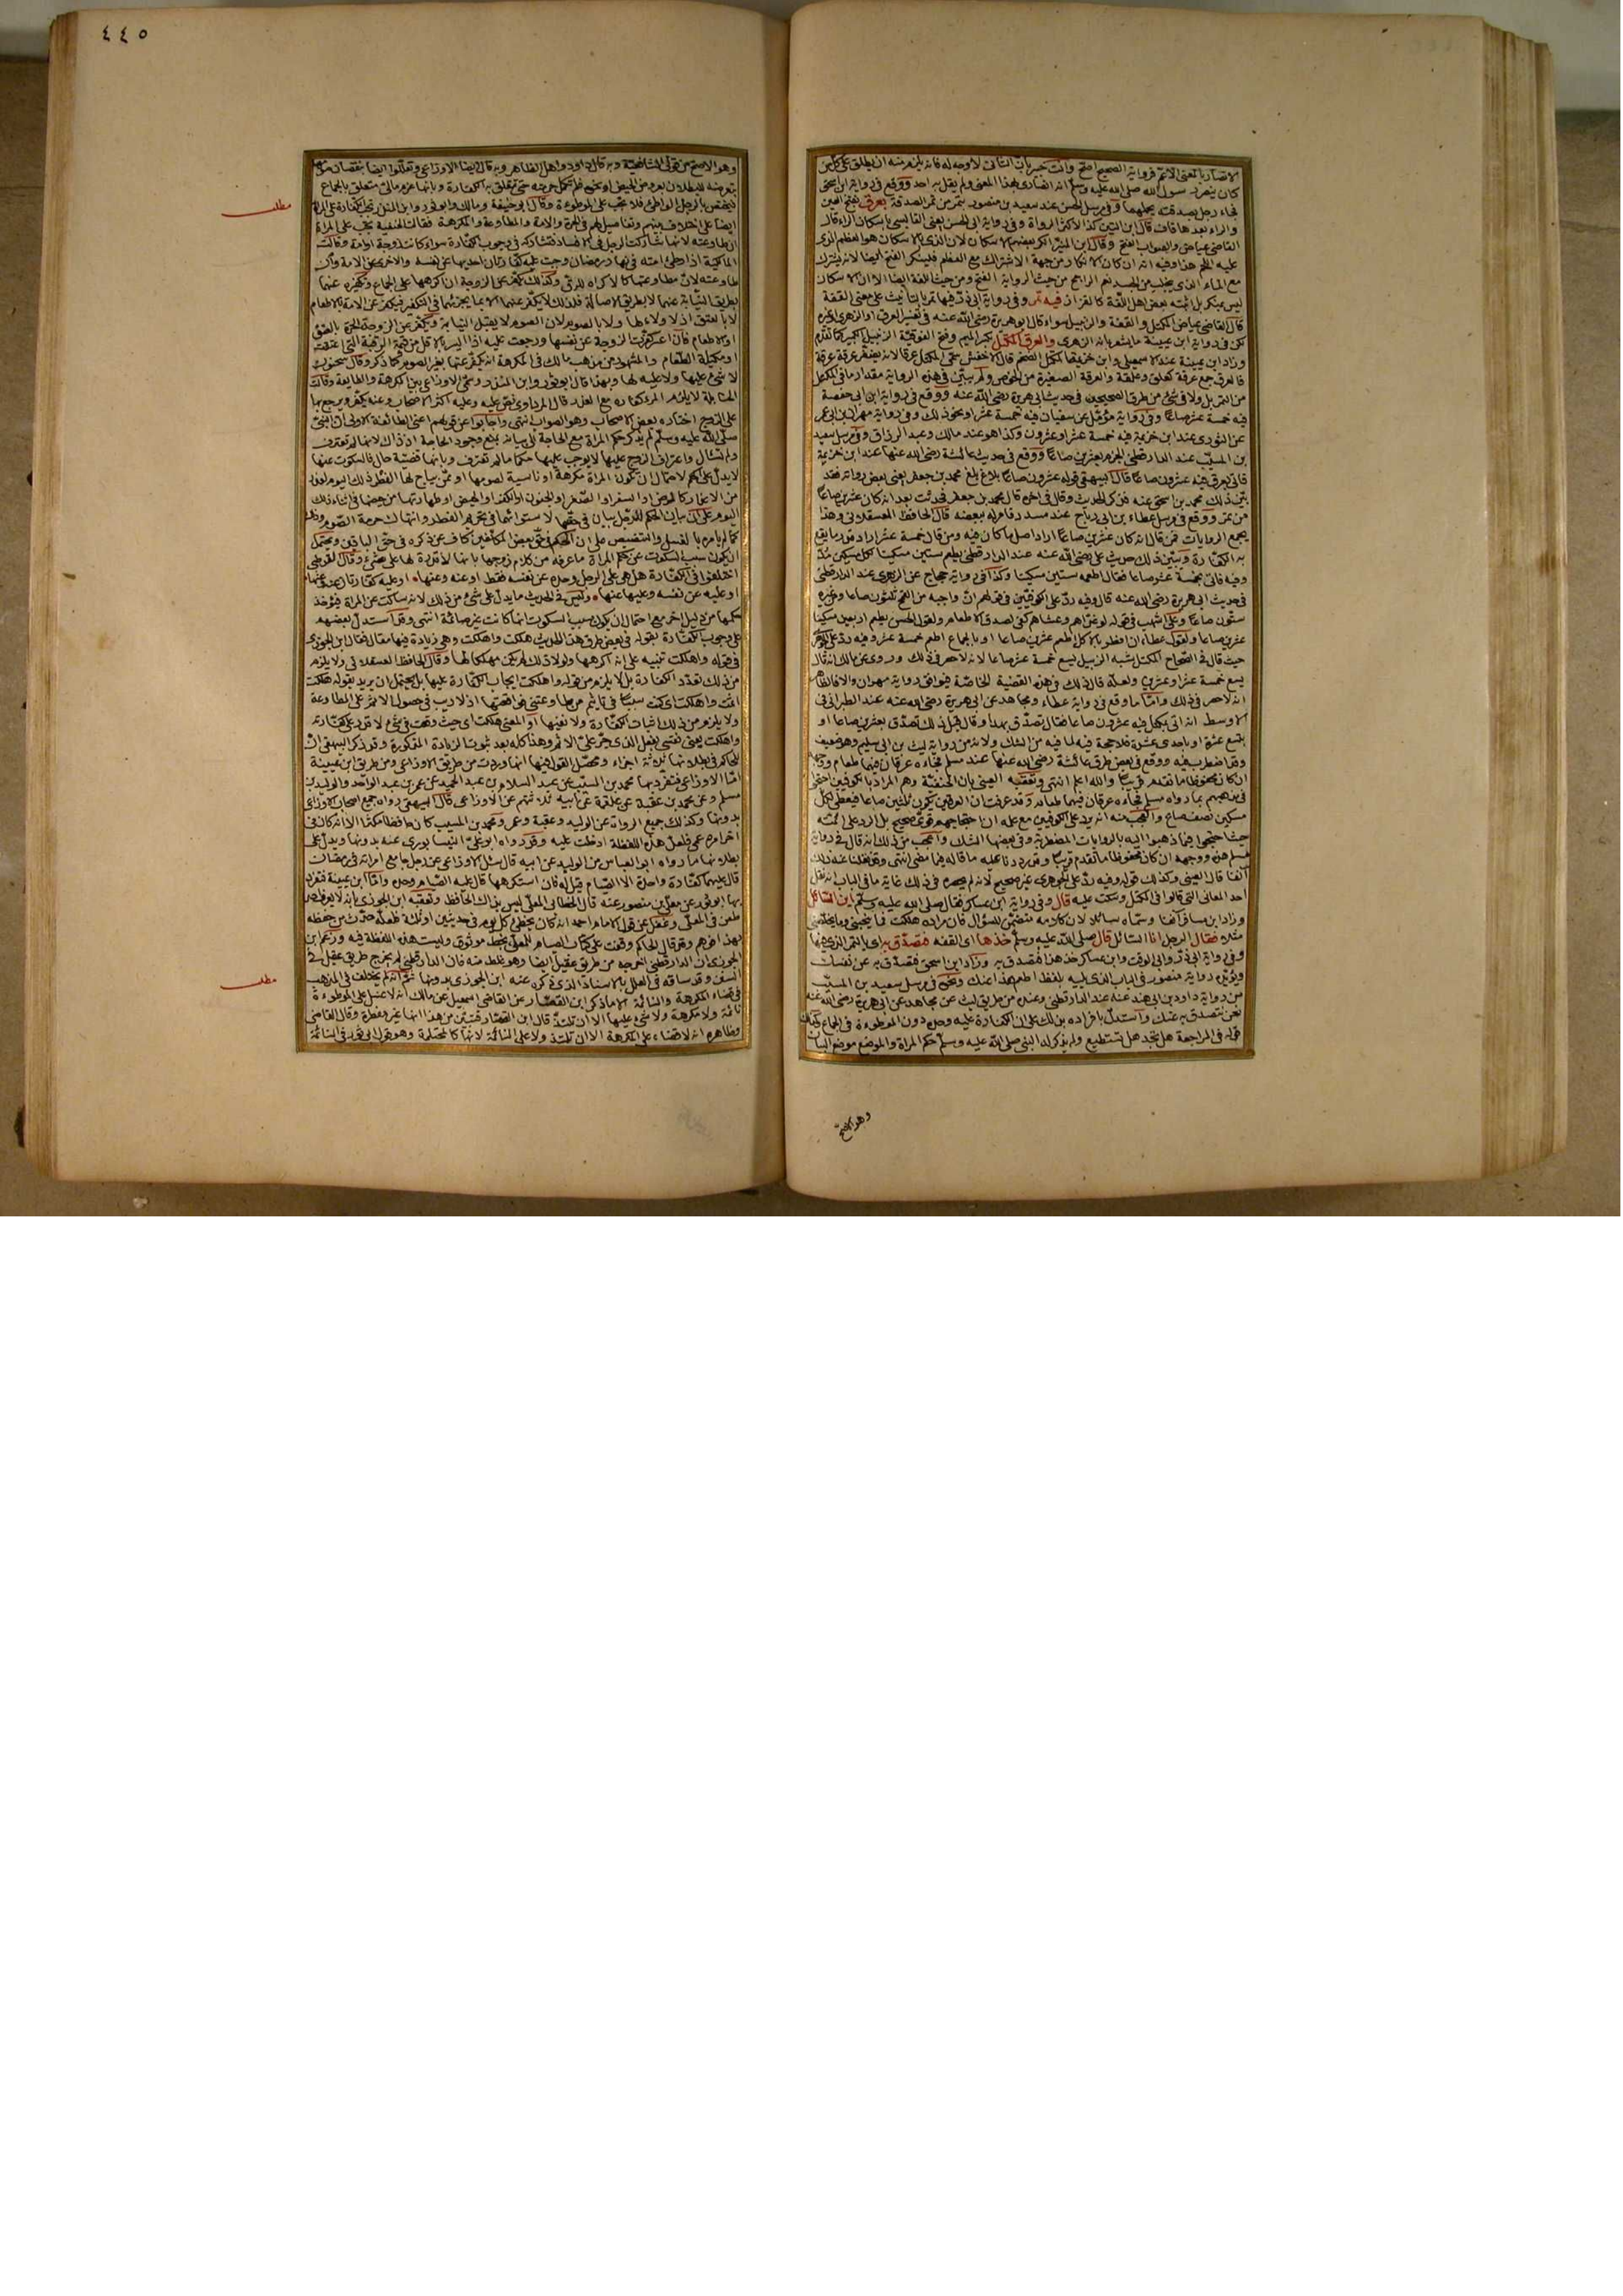 الانصار بالمعنى الاعم فرواية الصحيح اصح وانت خبير بان التأني لا وجه له فانه يلزم منه ان يطلق على كل من
كان ينصر رسول الله صلى الله عليه وسلم انه انصاري بهذا المعنى ولم يقل به احد ووقع في رواية ابن اسحق
فجاء رجل بصدقته يحملها وفي مرسل الحسن عند سعيد بن منصور بتمر من تمر الصدقة بعرق بفتح العين
والراء بعدها قاف قال ابن التين كذا لاكثر الرواة وفي رواية ابي الحسن يعني القابسي باسكان الراء قال
القاضي عياض والصواب الفتح وقال ابن التين انكر بعضهم الاسكان لان الذي بالاسكان هو العظم الذي
عليه اللحم هذا وفيه انه ان كان الانكار من جهة الاشتراك مع العظم فلينكر الفتح ايضا لانه يشترك
مع الماء الذي يتحلب من الجسد نعم الراجح من حيث الرواية الفتح ومن حيث اللغة ايضا الا ان الاسكان
ليس بمنكر بل اثبته بعض اهل اللغة كالقزاز فيه تمر وفي رواية ابي ذر فيها تمر بالتأنيث على معنى القفة
قال القاضي عياض المكتل والقفة والزبيل سواء قال ابو هريرة رضي الله عنه في تفسير العرق او الزهري او غيره
لكن في رواية ابن عيينة ما يشعر بانه الزهري والعرق المكتل بكسر الميم وفتح الفوقية الزبيل الكبير كما تقدم
وزاد ابن عيينة عند الاسمعيلي وابن خزيمة المكتل الضخم قال الاخفش سمي المكتل عرقا لانه يضفر عرقة عرقة
فالعرق جمع عرقة كعلق وعلقة والعرقة الصغيرة من الخوص ولم يبين في هذه الرواية مقدار ما في المكتل
من التمر بل ولا في شئ من طرق الصحيحين في حديث ابي هريرة رضي الله عنه ووقع في رواية ابن ابي حفصة
فيه خمسة عشر صاعا وفي رواية مؤمل عن سفيان فيه خمسة عشر او نحو ذلك وفي رواية مهران بن ابي عمر
عن الثوري عند ابن خزيمة فيه خمسة عشر او عشرون وكذا هو عند مالك وعبد الرزاق وفي مرسل سعيد
بن المسيب عند الدارقطني الجزم بعشرين صاعا ووقع في حديث عائشة رضي الله عنها عند ابن خزيمة
فاتي بعرق فيه عشرون صاعا قال البيهقي قوله عشرون صاعا بلاغ بلغ محمد بن جعفر يعني بعض رواته فقد
بين ذلك محمد بن اسحق عنه فذكر الحديث وقال في اخره قال محمد بن جعفر فحدثت بعد انه كان عشرين صاعا
من تمر ووقع في مرسل عطاء بن ابي رباح عند مسدد فامر له ببعضه قال الحافظ العسقلاني وهذا
يجمع الروايات فمن قال انه كان عشرين صاعا اراد اصل ما كان فيه ومن قال خمسة عشر اراد قدر ما يقع
به الكفارة ويبين ذلك حديث علي رضي الله عنه عند الدارقطني يطعم ستين مسكينا لكل مسكين مد
وفيه فاتي بخمسة عشر صاعا فقال اطعمه ستين مسكينا وكذا في رواية حجاج عن الزهري عند الدارقطني
في حديث ابي هريرة رضي الله عنه قال وفيه رد على الكوفيين في قولهم ان واجبه من القمح ثلثون صاعا ومن غيره
ستون صاعا وعلى اشهب في قوله لو غداهم وعشاهم كفى لصدق الاطعام ولقول الحسن يطعم اربعين مسكينا
عشرين صاعا ولقول عطاء ان افطر بالاكل اطعم عشرين صاعا او بالجماع اطعم خمسة عشر وفيه رد على الجوهري
حيث قال في الصحاح المكتل شبه الزبيل يسع خمسة عشر صاعا لانه لا حصر في ذلك وروي عن مالك انه قال
يسع خمسة عشر او عشرين ولعله قال ذلك في هذه القضية الخاصة فيوافق رواية مهران والا فالظاهر
انه لا حصر في ذلك واما ما وقع في رواية عطاء ومجاهد عن ابي هريرة رضي الله عنه عند الطبراني في
الاوسط انه اتي بمكتل فيه عشرون صاعا فقال تصدق بهذا وقال قبل ذلك تصدق بعشرين صاعا او
بتسع عشرة او باحدى عشرة فلا حجة فيه لما فيه من الشك ولانه من رواية ليث بن ابي سليم وهو ضعيف
وقد اضطرب فيه ووقع في بعض طرق عائشة رضي الله عنها عند مسلم فجاءه عرقان فيهما طعام ووجهه
ان كان محفوظا ما تقدم قريبا والله اعلم انتهى وتعقبه العيني بان الحنفية وهم المراد بالكوفيين احتجوا
في مذهبهم بما رواه مسلم فجاءه عرقان فيهما طعام وقد عرفت ان العرقين يكون ثلثين صاعا فيعطي لكل
مسكين نصف صاع والعجب منه انه يرد على الكوفيين مع علمه ان احتجاجهم قوي صحيح بل الرد على ائمته
حيث احتجوا فيما ذهبوا اليه بالروايات المضطربة وفي بعضها الشك واعجب من ذلك انه قال في رواية
مسلم هذه ووجهه ان كان محفوظا ما تقدم قريبا وقد رددنا عليه ما قاله فيما مضى انتهى وقد نقلنا عنه ذلك
آنفا قال العيني وكذلك قوله وفيه رد على الجوهري غير صحيح لانه لم يحصره في ذلك غاية ما في الباب انه نقل
احد المعاني التي قالوا في المكتل وسكت عليه قال وفي رواية ابن عساكر فقال صلى الله عليه وسلم اين السائل
وزاد ابن مسافر آنفا وسماه سائلا لان كلامه متضمن للسؤال فان مراده هلكت فما ينجيني وما يخلصني
مثلا فقال الرجل انا السائل قال صلى الله عليه وسلم خذها اى القفة فتصدق به اى بالتمر الذي فيها
وفي رواية ابي ذر وابي الوقت وابن عساكر خذ هذا فتصدق به وزاد ابن اسحق فتصدق به عن نفسك
ويؤيده رواية منصور في الباب الذي يليه بلفظ اطعم هذا عنك ونحوه في مرسل سعيد بن المسيب
من رواية داود بن ابي هند عنه عند الدارقطني وعنده من طريق ليث عن مجاهد عن ابي هريرة رضي الله عنه
نحن نتصدق به عنك واستدل بافراده بذلك على ان الكفارة عليه وحده دون الموطوءة في الجماع وكذا
قوله في المراجعة هل تجد هل تستطيع ولم يذكر له النبي صلى الله عليه وسلم حكم المراة والموضع موضع البيان
وهو الاصح
٤٤٥
وهو الاصح من قولي الشافعية وبه قال داود واهل الظاهر وبه قال ايضا الاوزاعي وتعللوا ايضا بنقصان صومها
بتعرضه للبطلان بعروض الحيض او نحوه فلم تكمل حرمته حتى يتعلق به الكفارة وبانها غرم مالي متعلق بالجماع
فيختص بالرجل الواطئ فلا يجب على الموطوءة وقال ابو حنيفة ومالك وابو ثور وابن المنذر تجب الكفارة على المراة
مطلب
ايضا على اختلاف بينهم وتفاصيل لهم في الحرة والامة والمطاوعة والمكرهة فقالت الحنفية يجب على المراة
ان طاوعته لانها شاركت الرجل في الافساد فتشاركه في وجوب الكفارة سواء كانت زوجة او امة وقالت
المالكية اذا وطئ امته في نهار رمضان وجبت عليه كفارتان احديهما عن نفسه والاخرى عن الامة وان
طاوعته لان مطاوعتها كالاكراه للرق وكذلك يكفر عن الزوجة ان اكرهها على الجماع وتكفيره عنهما
بطريق النيابة عنهما لا بطريق الاصالة فلذلك لا يكفر عنهما الا بما يجزئهما في التكفير فيكفر عن الامة بالاطعام
لا بالعتق اذ لا ولاء لها ولا بالصوم لان الصوم لا يقبل النيابة ويكفر عن الزوجة الحرة بالعتق
او الاطعام فان اعسر كفرت الزوجة عن نفسها ورجعت عليه اذا ايسر بالاقل من قيمة الرقبة التي اعتقت
او مكيلة الطعام والمشهور من مذهب مالك في المكرهة انه يكفر عنها بغير الصوم كما ذكر وقال سحنون
لا شئ عليها ولا عليه لها وبهذا قال ابو ثور وابن المنذر وعن الاوزاعي بين المكرهة والطايعة وقالت
الحنابلة لا يلزم المراة كفارة مع العذر قال المرداوي نص عليه وعليه اكثر الاصحاب وعنه يكفر ويرجع بها
على الزوج اختاره بعض الاصحاب وهو الصواب انتهى واجابوا عن قولهم اعني الطائفة الاولى ان النبي
صلى الله عليه وسلم لم يذكر حكم المراة مع الحاجة الى بيانه بمنع وجود الحاجة اذ ذاك لانها لم تعترف
ولم تسال واعتراف الزوج عليها لا يوجب عليها حكما ما لم تعترف وبانها قضية حال فالسكوت عنها
لا يدل على حكم لاحتمال ان تكون المراة مكرهة او ناسية لصومها او ممن يباح لها الفطر ذلك اليوم لعذر
من الاعذار كالمرض او السفر او الصغر او الجنون او الكفر او الحيض او طهارتها من حيضها في اثناء ذلك
اليوم على ان بيان الحكم للرجل بيان في حقها لاستوائهما في تحريم الفطر وانتهاك حرمة الصوم وذلك
كما لم يامره بالغسل والتنصيص على ان الحكم في حق بعض المكلفين كاف عن ذكره في حق الباقين ويحتمل
ان يكون سبب السكوت عن حكم المراة ما عرفه من كلام زوجها بانها لا قدرة لها على شئ وقال القرطبي
اختلفوا في الكفارة هل هي على الرجل وحده عن نفسه فقط او عنه وعنها او عليه كفارتان عنه وعنها
او عليه عن نفسه وعليها عنها وليس في الحديث ما يدل على شئ من ذلك لانه ساكت عن المراة فيؤخذ
حكمها من دليل اخر مع احتمال ان يكون سبب السكوت انها كانت غير صائمة انتهى وقد استدل بعضهم
على وجوب الكفارة بقوله في بعض طرق هذا الحديث هلكت واهلكت وهي زيادة فيها مقال فقال ابن الجوزي
في قوله واهلكت تنبيه على انه اكرهها ولولا ذلك لم يكن مهلكا لها وقال الحافظ العسقلاني ولا يلزم
من ذلك تعدد الكفارة بل لا يلزم من قوله واهلكت ايجاب الكفارة عليها بل يحتمل ان يريد بقوله هلكت
اثمت واهلكت اى كنت سببا في تاثيم من طاوعتني فواقعتها اذ لا ريب في حصول الاثم على المطاوعة
ولا يلزم من ذلك اثبات الكفارة ولا نفيها او المعنى هلكت اى حيث وقعت في شئ لا اقدر على كفارته
واهلكت يعني نفسي بفعل الذي جر علي الاثم وهذا كله بعد ثبوت الزيادة المذكورة وقد ذكر البيهقي ان
للحاكم في بطلانها ثلاثة اجزاء ومحصل القول فيها انها وردت من طريق الاوزاعي ومن طريق ابن عيينة
اما الاوزاعي فتفرد بها محمد بن المسيب عن عبد السلام بن عبد الحميد عن عمر بن عبد الواحد والوليد بن
مسلم وعن محمد بن عقبة عن علقمة عن ابيه ثلاثتهم عن الاوزاعي قال البيهقي رواه جميع اصحاب الاوزاعي
بدونها وكذلك جميع الرواة عن الوليد وعقبة وعمر ومحمد بن المسيب كان حافظا مكثرا الا انه كان في
اخر امره عمي فلعل هذه اللفظة ادخلت عليه وقد رواه ابو علي النيسابوري عنه بدونها ويدل على
بطلانها ما رواه ابو العباس بن الوليد عن ابيه قال سئل الاوزاعي عن رجل جامع امراته في رمضان
قال عليهما كفارة واحدة الا الصيام قيل له فان استكرهها قال عليه الصيام وحده واما ابن عيينة فتفرد
بها ابو ثور عن معلى بن منصور عنه قال الخطابي المعلى ليس بذاك الحافظ وتعقبه ابن الجوزي بانه لا يعرف احدا
طعن في المعلى وغفل عن قول الامام احمد انه كان يخطئ كل يوم في حديثين او ثلثة فلعله حدث من حفظه
بهذا فوهم وقد قال الحاكم وقفت على كتاب الصيام للمعلى بخط موثوق وليست هذه اللفظة فيه وزعم ابن
الجوزي ان الدارقطني اخرجه من طريق عقيل ايضا وهو غلط منه فان الدارقطني لم يخرج طريق عقيل في
السنن وقد ساقه في العلل بالاسناد الذي ذكره عنه ابن الجوزي بدونها ثم انه لم يختلف في المذهب
مطلب
في قضاء المكرهة والنائمة الا ما ذكر ابن القصار عن القاضي اسمعيل عن مالك انه لا غسل على الموطوءة
نائمة ولا مكرهة ولا شئ عليها الا ان تلتذ قال ابن القصار فتبين من هذا انها غير مفطرة وقال القاضي
وظاهره انه لا قضاء على المكرهة الا ان تلتذ ولا على النائمة لانها كالمحتلمة وهو قول ابي ثور في النائمة